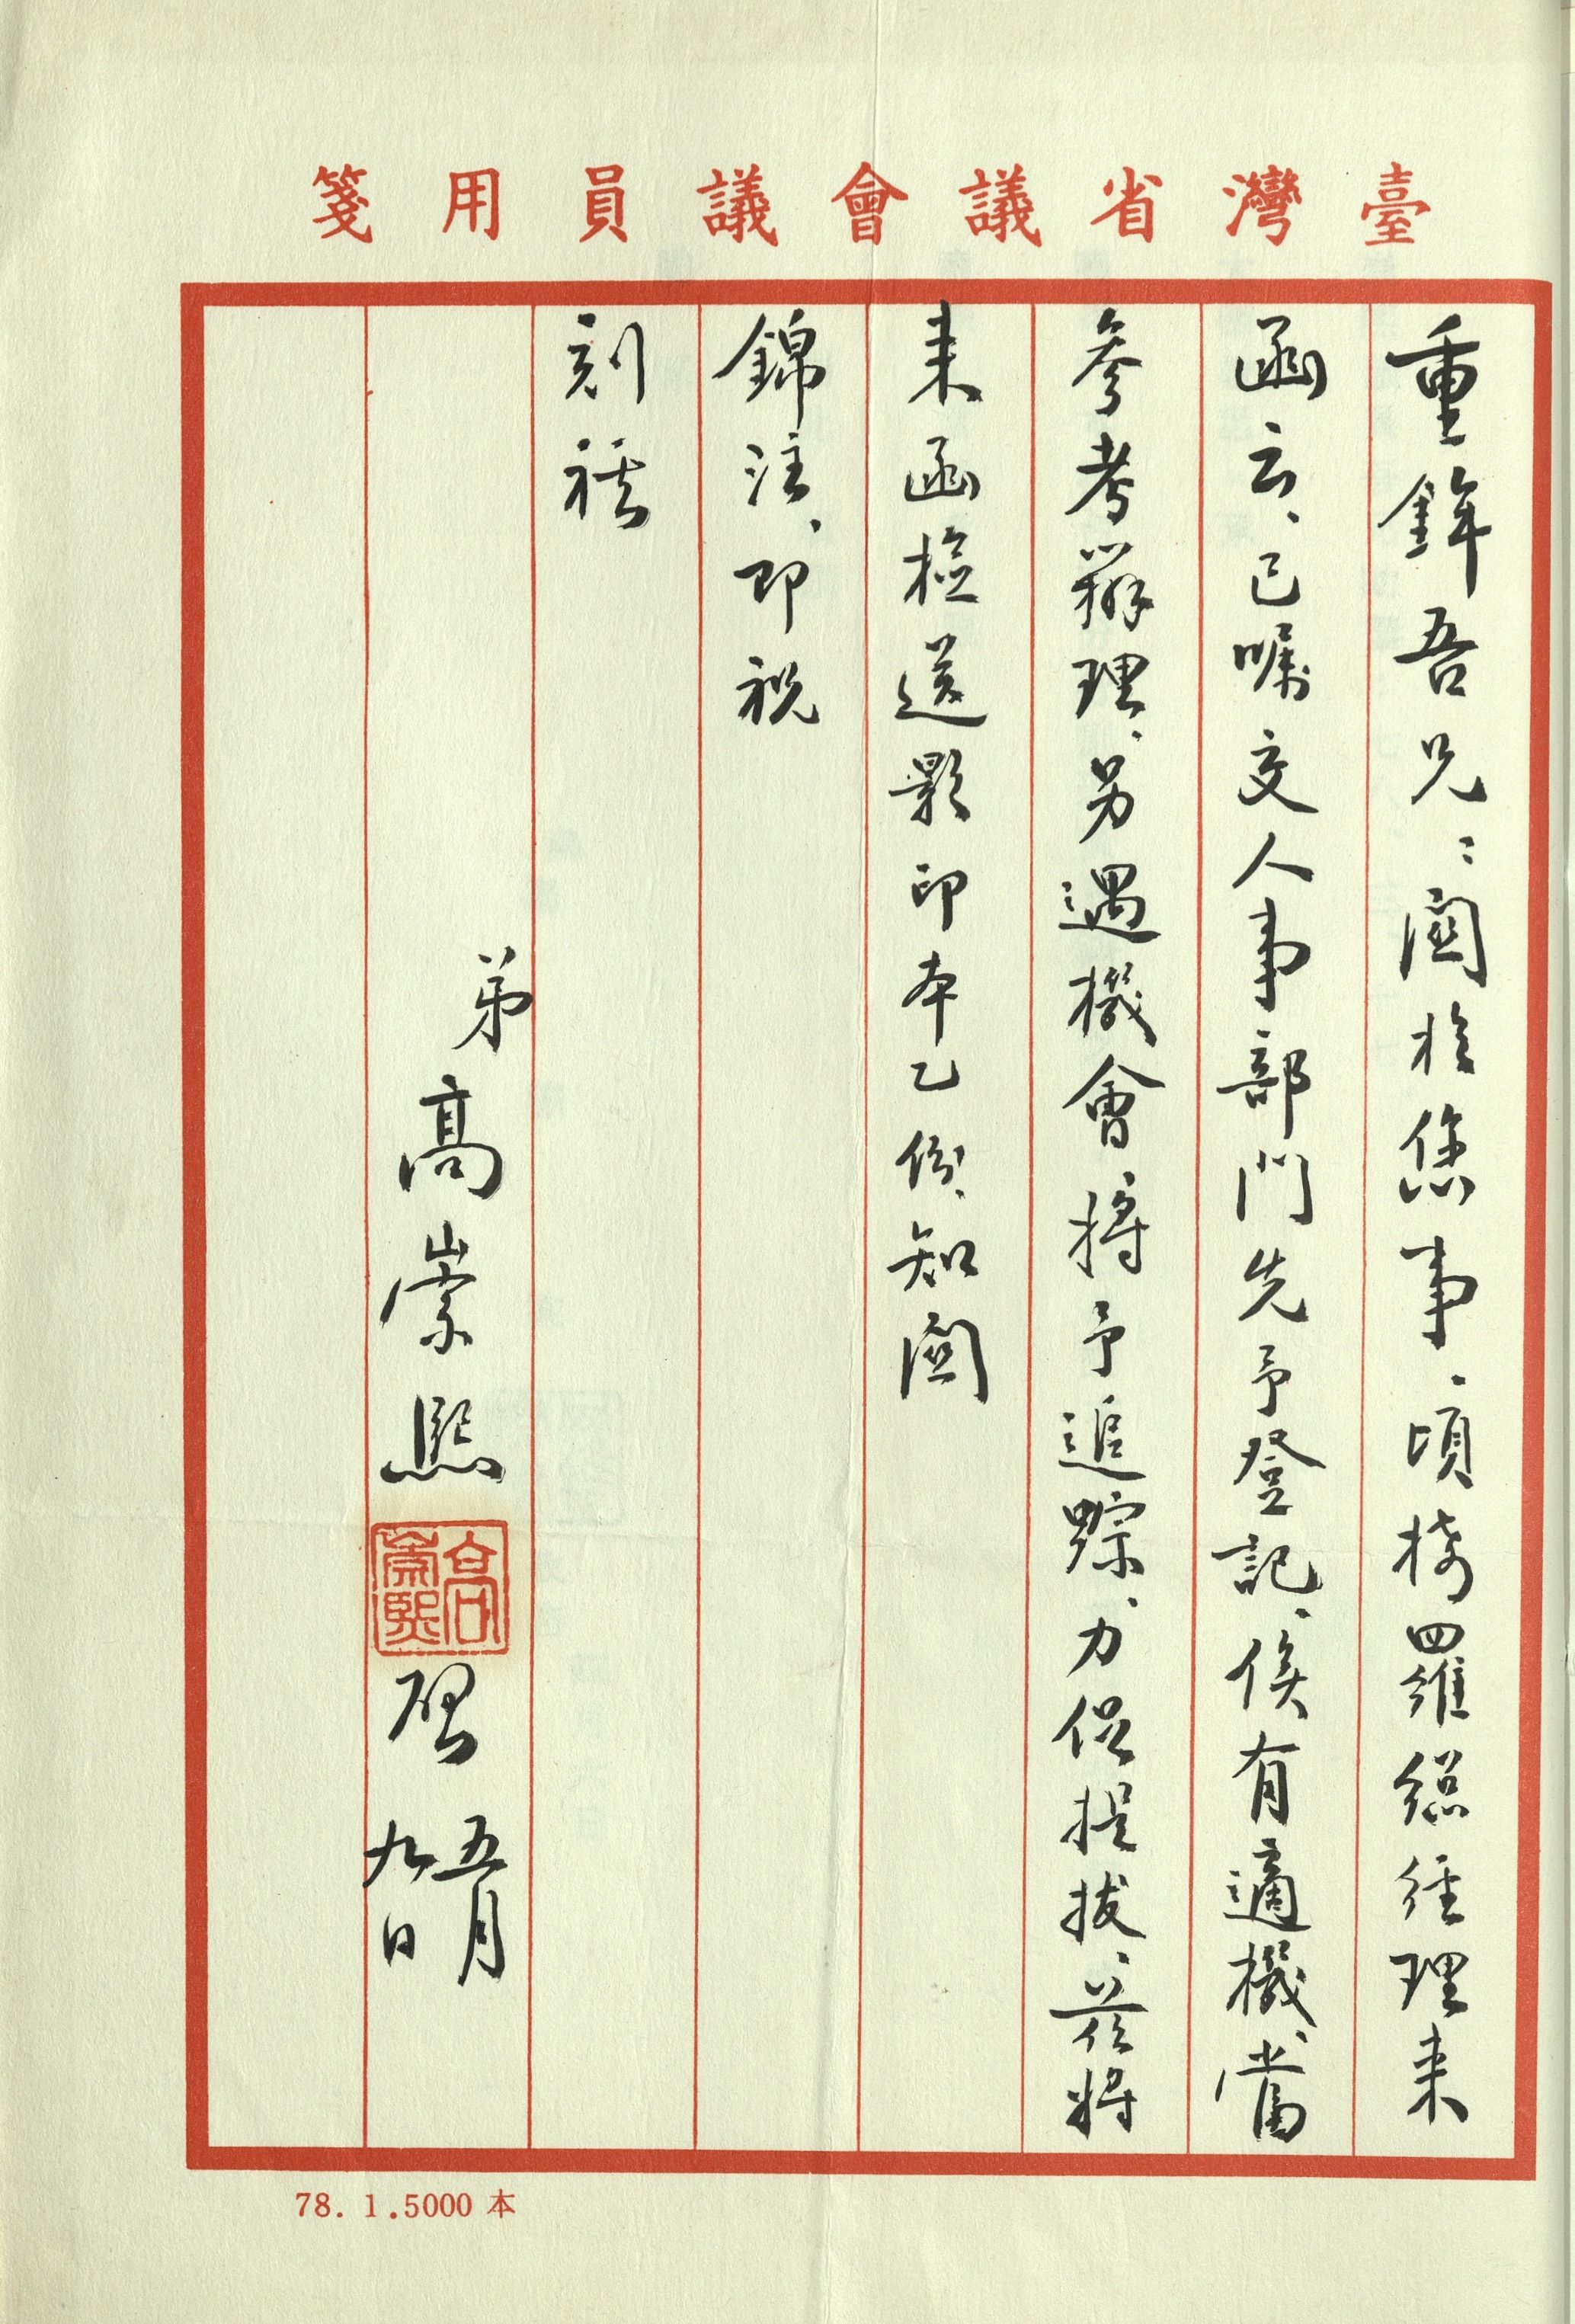 臺灣省議會議員用箋
重鉾吾兄：關於您事、頃接羅總經理来
函云、已囑交人事部門先予登記、俟有適機、當
參考辦理、另遇機會、將予追踪、力促提拔、茲將
来函檢送影印本乙份、知關
錦注、即祝
刻祺
弟高崇熙
高崇熙
啓 五月九日
78. 1.5000 本